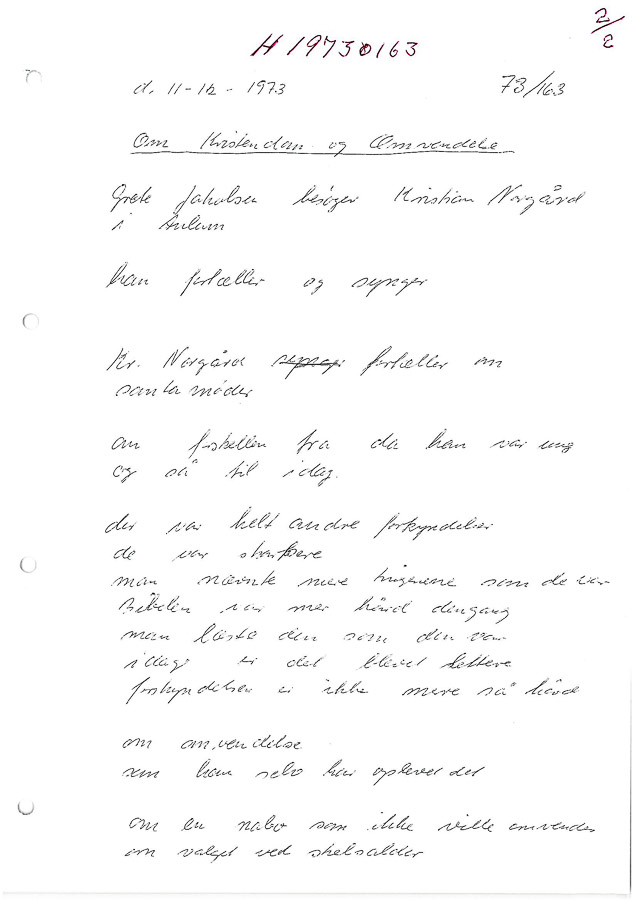 2/2
H 19730163
d. 11-12-1973 73/163
Om Kristendom og Omvendelse
Grete Jakobsen besøger Kristian Norgård
i Aulum
han fortæller og synger
Kr. Norgård synger fortæller om
samtamøder
om forskellen fra da han var ung
og så til idag.
der var helt andre forkyndelser
de var skarpere
man nævnte mere tingene som de var
Bibelen var mer hård dengang
man læste den som den var
idag er det blevet lettere
forkyndelsen er ikke mere så hård
om omvendelse
som han selv har oplevet det
om en nabo som ikke ville omvendes
om valget ved skelsalder